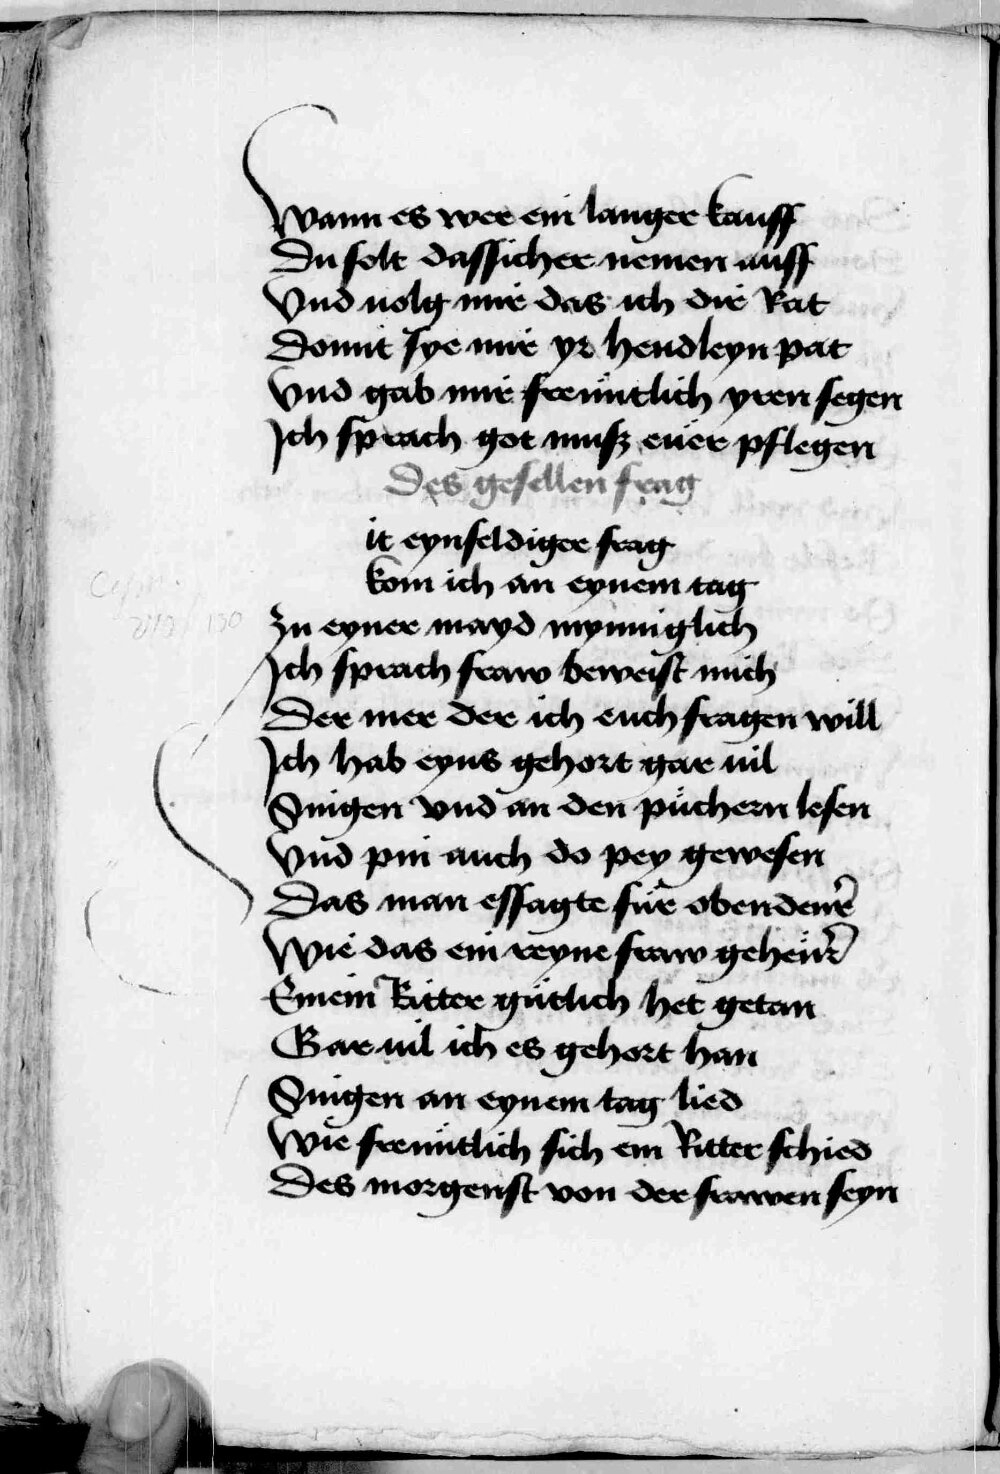 Wann es wer ein langer kauff
Du solt das sicher nemen auff
Vnd uolg mir das ich dir Rat
Domit sye mir yr hendleyn pat
Vnd gab mir freüntlich yren segen
Ich sprach got muß eüer pflegen
Des gesellen frag
it eynfeldiger frag
kom ich an eynem tag
Zu eyner mayd mynniglich
Ich sprach fraw beweist mich
Der mer der ich euch fragen will
Ich hab eyns gehort gar uil
Singen vnd an den püchern lesen
Vnd pin auch do pey gewesen
Das man es sagte für obendeür
Wie das ein reyne fraw geheür
Einem Ritter gütlich het getan
Gar uil ich es gehort han
Singen an eynem tag lied
Wie freüntlich sich ein Ritter schied
Des morgenst von der frawen seyn